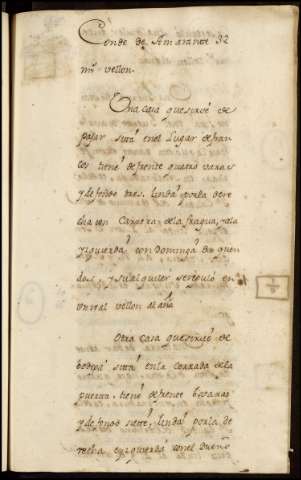 Conde de Amarante 32
mrs vellon.
Una casa que sirve de
pajar sita en el Lugar de fran
cos tiene de frente quatro varas
y de fondo tres, linda por la dere
cha con Carrera de la fragua, a la
yzquierda con Dominga da
dos, y su alquiler se reguló en
un real vellon al año
Otra casa que sirve de
bodega sita en la Corrada de la
puerta, tiene de frente 6 varas
y de fondo siete, linda por la de
recha e yzquierda con el Dueño